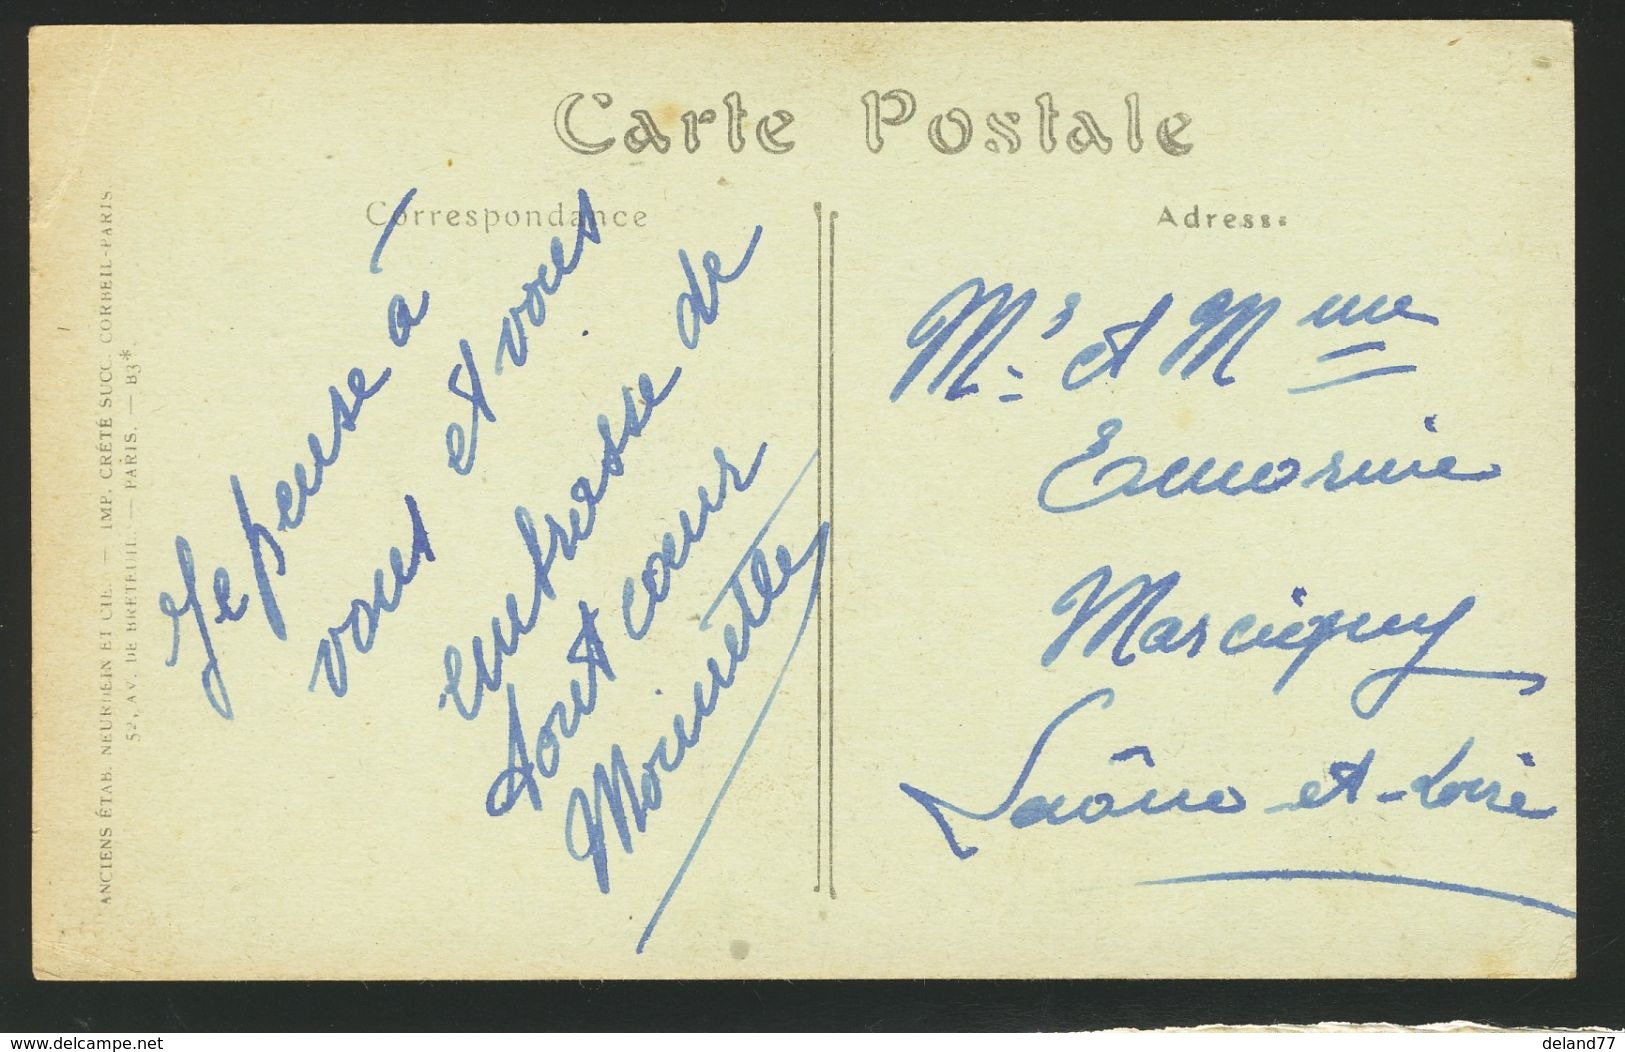 Carte Postale
Correspondance
Adresse
Je pense à
vous et vous
embrasse de
tout cœur
Moinette
Mr et Mme
Emorine
Marcigny
Saône-et-Loire
ANCIENS ÉTAB. NEURDEIN ET CIE. — IMP. CRÉTÉ SUCC. CORBEIL-PARIS
52, AV. DE BRETEUIL — PARIS. — B3*.
www.delcampe.net
deland77